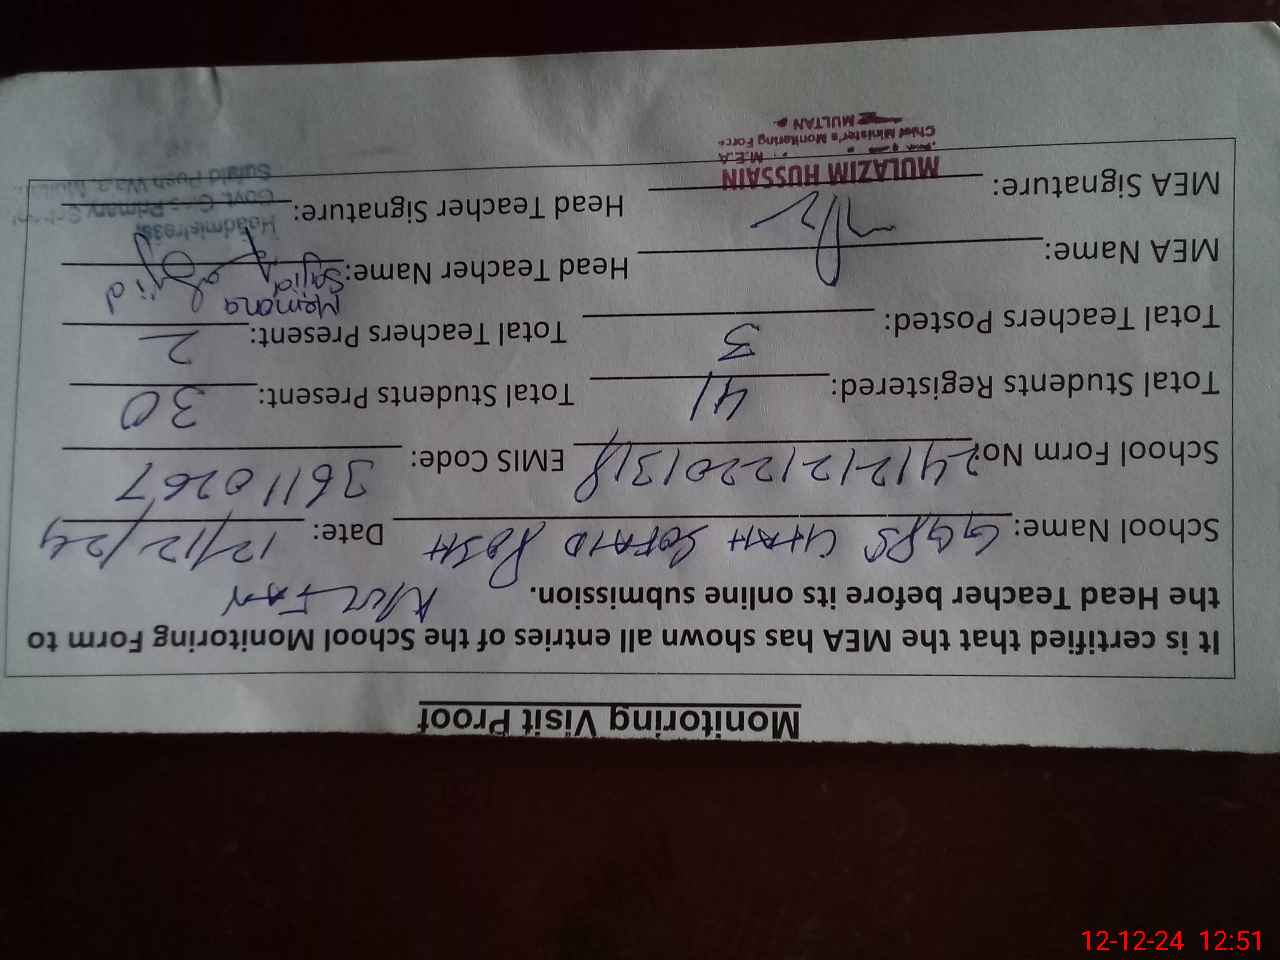 Monitoring Visit Proof
It is certified that the MEA has shown all entries of the School Monitoring Form to
the Head Teacher before its online submission. MULTAN
School Name: GGPS CHAH SOFAID POSH Date: 12/12/24
School Form No: 24121212201318 EMIS Code: 36110267
Total Students Registered: 41 Total Students Present: 30
Total Teachers Posted: 3 Total Teachers Present: 2
MEA Name: Head Teacher Name: Memona Sajid
MEA Signature: Head Teacher Signature:
MULAZIM HUSSAIN
M.E.A
Chief Minister's Monitoring Force
MULTAN
Headmistress,
Govt. Primary
12-12-24 12:51